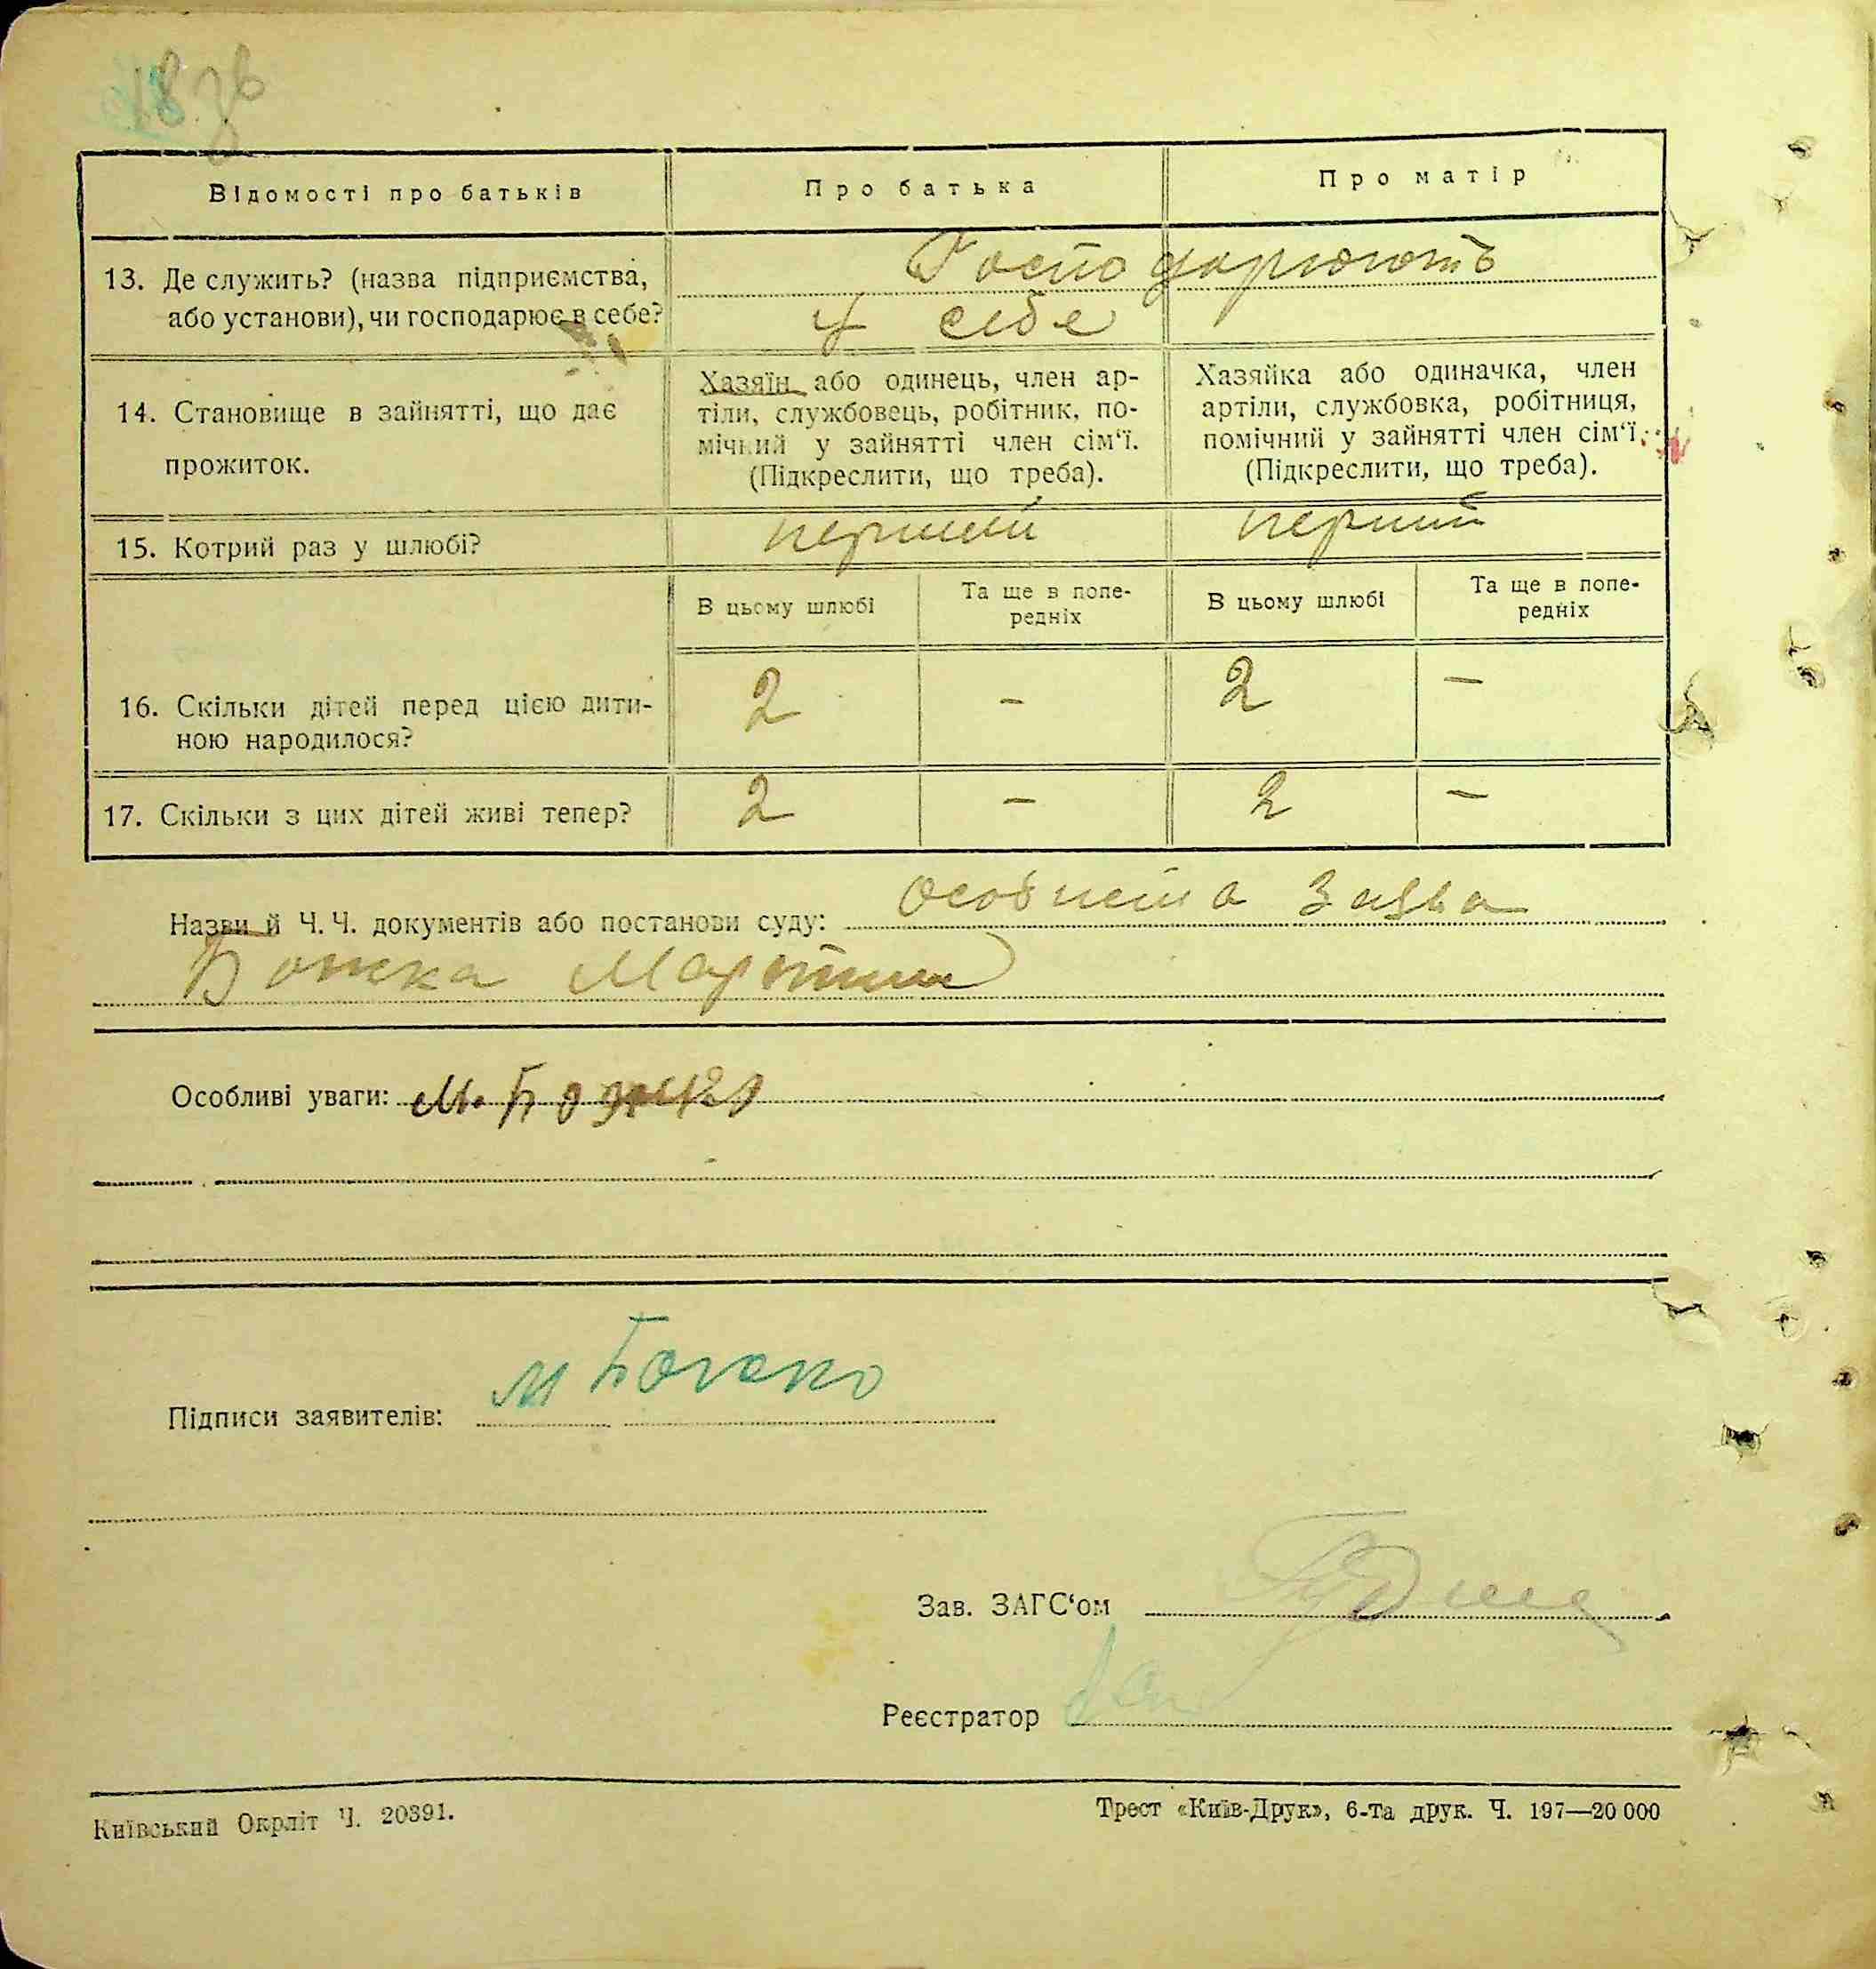 Відомості про батьків
Про батька
Про матір
13. Де служить? (назва підприємства,
або установи), чи господарює в себе?
Господарюють
у себе
14. Становище в зайнятті, що дає
прожиток.
Хазяїн або одинець, член ар-
тіли, службовець, робітник, по-
мічний у зайнятті член сім‘ї.
(Підкреслити, що треба).
Хазяйка або одиначка, член
артіли, службовка, робітниця,
помічний у зайнятті член сім‘ї.
(Підкреслити, що треба).
15. Котрий раз у шлюбі?
перший
перший
В цьому шлюбі
Та ще в попе-
редніх
В цьому шлюбі
Та ще в попе-
редніх
16. Скільки дітей перед цією дити-
ною народилося?
2
–
2
–
17. Скільки з цих дітей живі тепер?
2
–
2
–
Назви й Ч. Ч. документів або постанови суду: особиста заява
Божка Мартина
Особливі уваги: М. Божко
Підписи заявителів: М Божко
Зав. ЗАГС‘ом
Реєстратор
Київський Окрліт Ч. 20391.
Трест «Київ-Друк», 6-та друк. Ч. 197—20 000